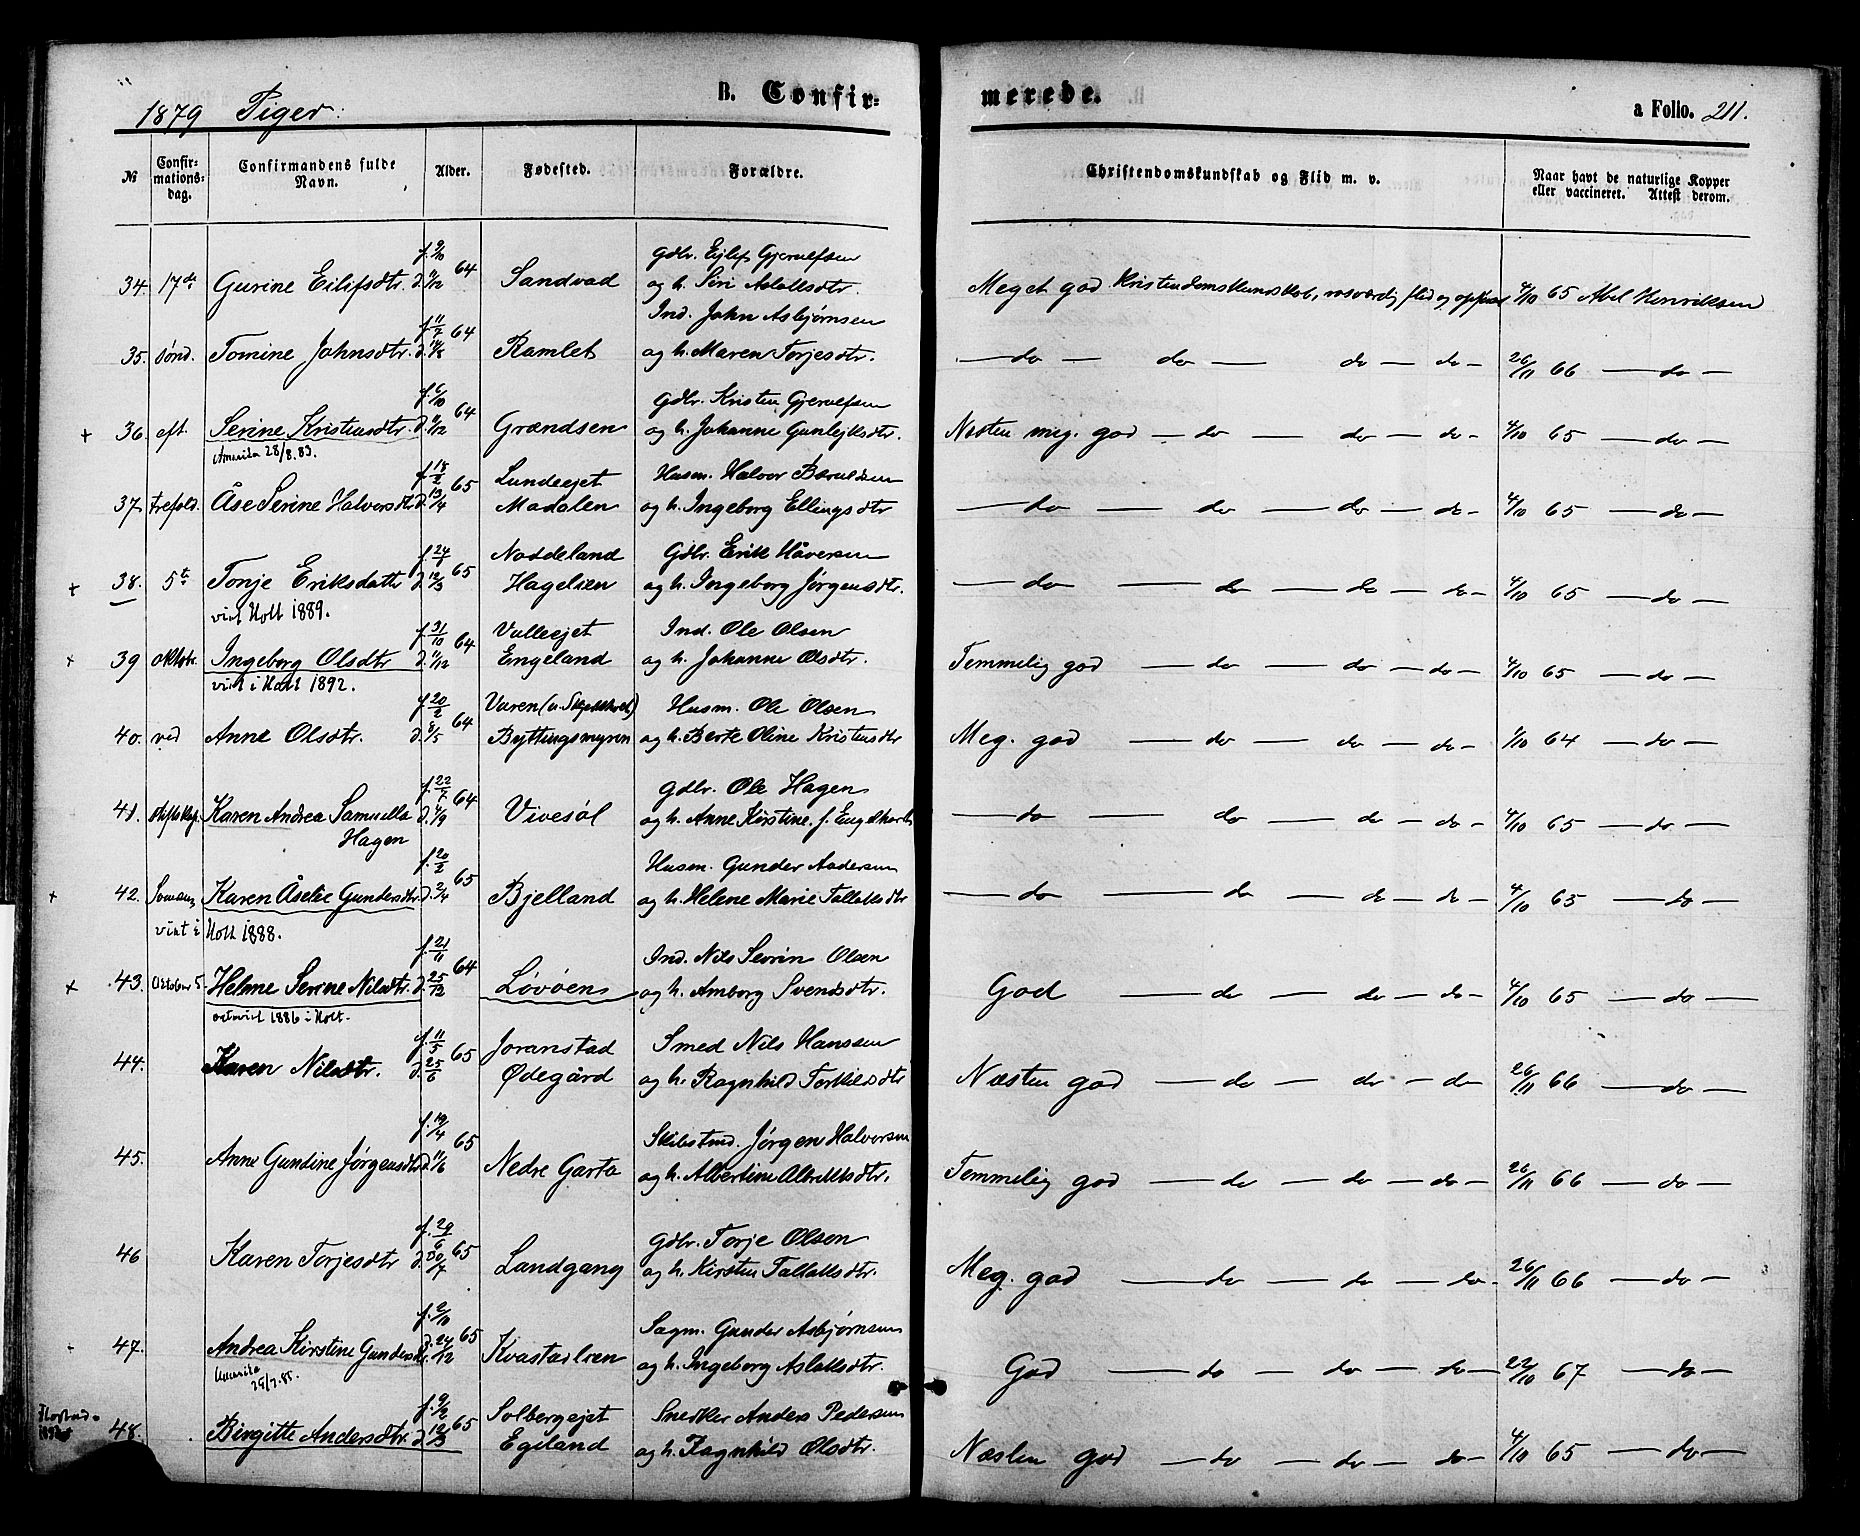 1879 Piger:
B. Confirmerede.
a Folio. 211.
№ Confirmationsdag. Confirmandens fulde Navn. Alder. Fødested. Forældre. Christendomskundskab og Flid m. v. Naar havt de naturlige Kopper eller vaccineret. Attest derom.
f. 9/10 Gdbr. Eilef Gjerulfsen
34. 17de Gurine Eilifsdtr. d. 11/12 64 Sandvad og h. Siri Aslaksdtr Meget god Kristendomskundskab, rosværdig flid og opførsel 4/10 65 Abel Henriksen
f. 11/7 Ind. John Asbjørnsen
35. sønd. Tomine Johnsdtr. d. 14/8 64 Ramlet og h. Maren Torjesdtr. — do — do — do — do — 26/11 66 — do —
f. 6/10 Gdbr. Kristen Gjerulfsen
+ 36. eft. Serine Kristensdtr. d. 11/12 64 Grændsen og h. Johanne Gunlejksdtr. Næsten meg. god — do — do — do — 4/10 65 — do —
Amerika 28/8.83.
f. 18/2 Lundeejet Husm. Halvor Bærulfsen
37 trefold. Åse Serine Halvorsdtr d. 13/4 65 Madalen og h. Ingeborg Ellingsdtr — do — do — do — do — 4/10 65 — do —
f. 24/1 Noddeland Gdbr. Erik Håversen
+ 38. 5te Tonje Eriksdatter d. 12/3 65 Hagelien og h. Ingeborg Jørgensdtr. — do — do — do — do — 4/10 65 — do —
viet Holt 1889.
f. 31/10 Valleejet Ind. Ole Olsen
+ 39 oktobr. Ingeborg Olsdtr d. 11/12 64 Engeland og h. Johanne Olsdtr. Temmelig god — do — do — do — 4/10 65 — do —
viet i Holt 1892.
f. 20/2 Varen Husm. Ole Olsen
40. ved Anne Olsdtr. d. 8/5 64 Byttingsmyren og h. Berte Oline Kristensdtr Meg. god — do — do — do — 1/10 64 — do —
f. 22/7 Gdbr. Ole Hagen
41. Karen Andrea Samuella d. 4/9 64 Vivesøl og h. Anne Kirstine, f. Engelhardt — do — do — do — do — 4/10 65 — do —
Hagen
f. 20/2 Husm. Gunder Andersen
+ 42. Karen Åselie Gundersdtr d. 2/4 65 Bjelland og h. Helene Marie Tallaksdtr — do — do — do — do — 4/10 65 — do —
viet i Holt 1888.
f. 21/11 Ind. Nils Severin Olsen
+ 43. Oktober 5. Helene Serine Nilsdtr. d. 25/12 64 Løvøens og h. Amborg Svendsdtr. God — do — do — do — 4/10 65 — do —
viet 1886 i Holt.
f. 11/5 Joranstad Smed Nils Hanssen
44. Karen Nilsdtr. d. 25/6 65 Ødegård og h. Ragnhild Torkildsdtr Næsten god — do — do — do 26/11 66 — do —
f. 19/4 Skibstmd. Jørgen Halvorsen
45. Anne Gundine Jørgensdtr d. 11/6 65 Nedre Garta og h. Albertine Albrektsdtr. Temmelig god — do — do — do — 26/11 66 — do —
f. 29/6 Gdbr. Torje Olsen
46 Karen Torjesdtr d. 30/7 65 Landgang og h. Kirsten Tallaksdtr. Meg. god — do — do — do — 26/11 66 — do —
f. 2/10 Sagm. Gunder Asbjørnsen
47. Andrea Kirstine Gundersdtr. d. 24/12 65 Kvastadlien og h. Ingeborg Aslaksdtr. God — do — do — do — 22/10 67 — do —
Amerika
29/7.85.
f. 9/2 Solbergejet Snedker Anders Pedersen
48. Birgitte Andersdtr. d. 12/3 65 Egeland og h. Ragnhild Olsdtr. Næsten god — do — do — do — 4/10 65 — do —